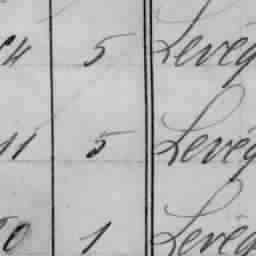 5 Levêq
11 5 Levêq
0 1 Levêq